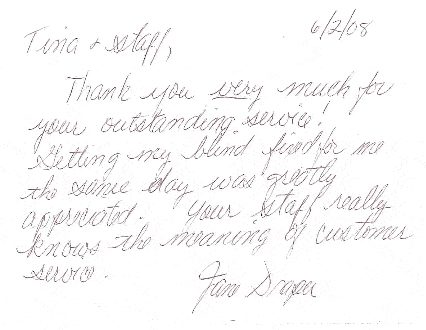 6/2/08
Tina & staff,
Thank you very much for
your outstanding service!
Getting my blind fixed for me
the same day was greatly
appreciated. Your staff really
knows the meaning of customer
service.
Jane Draper